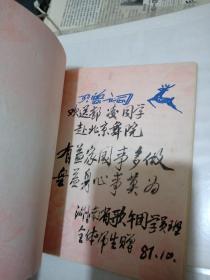 欢送郝凌同学
赴北京舞院
有益家国事多做
无益身心事莫为
湖北省歌午团学员班
全体师生赠 87.10.